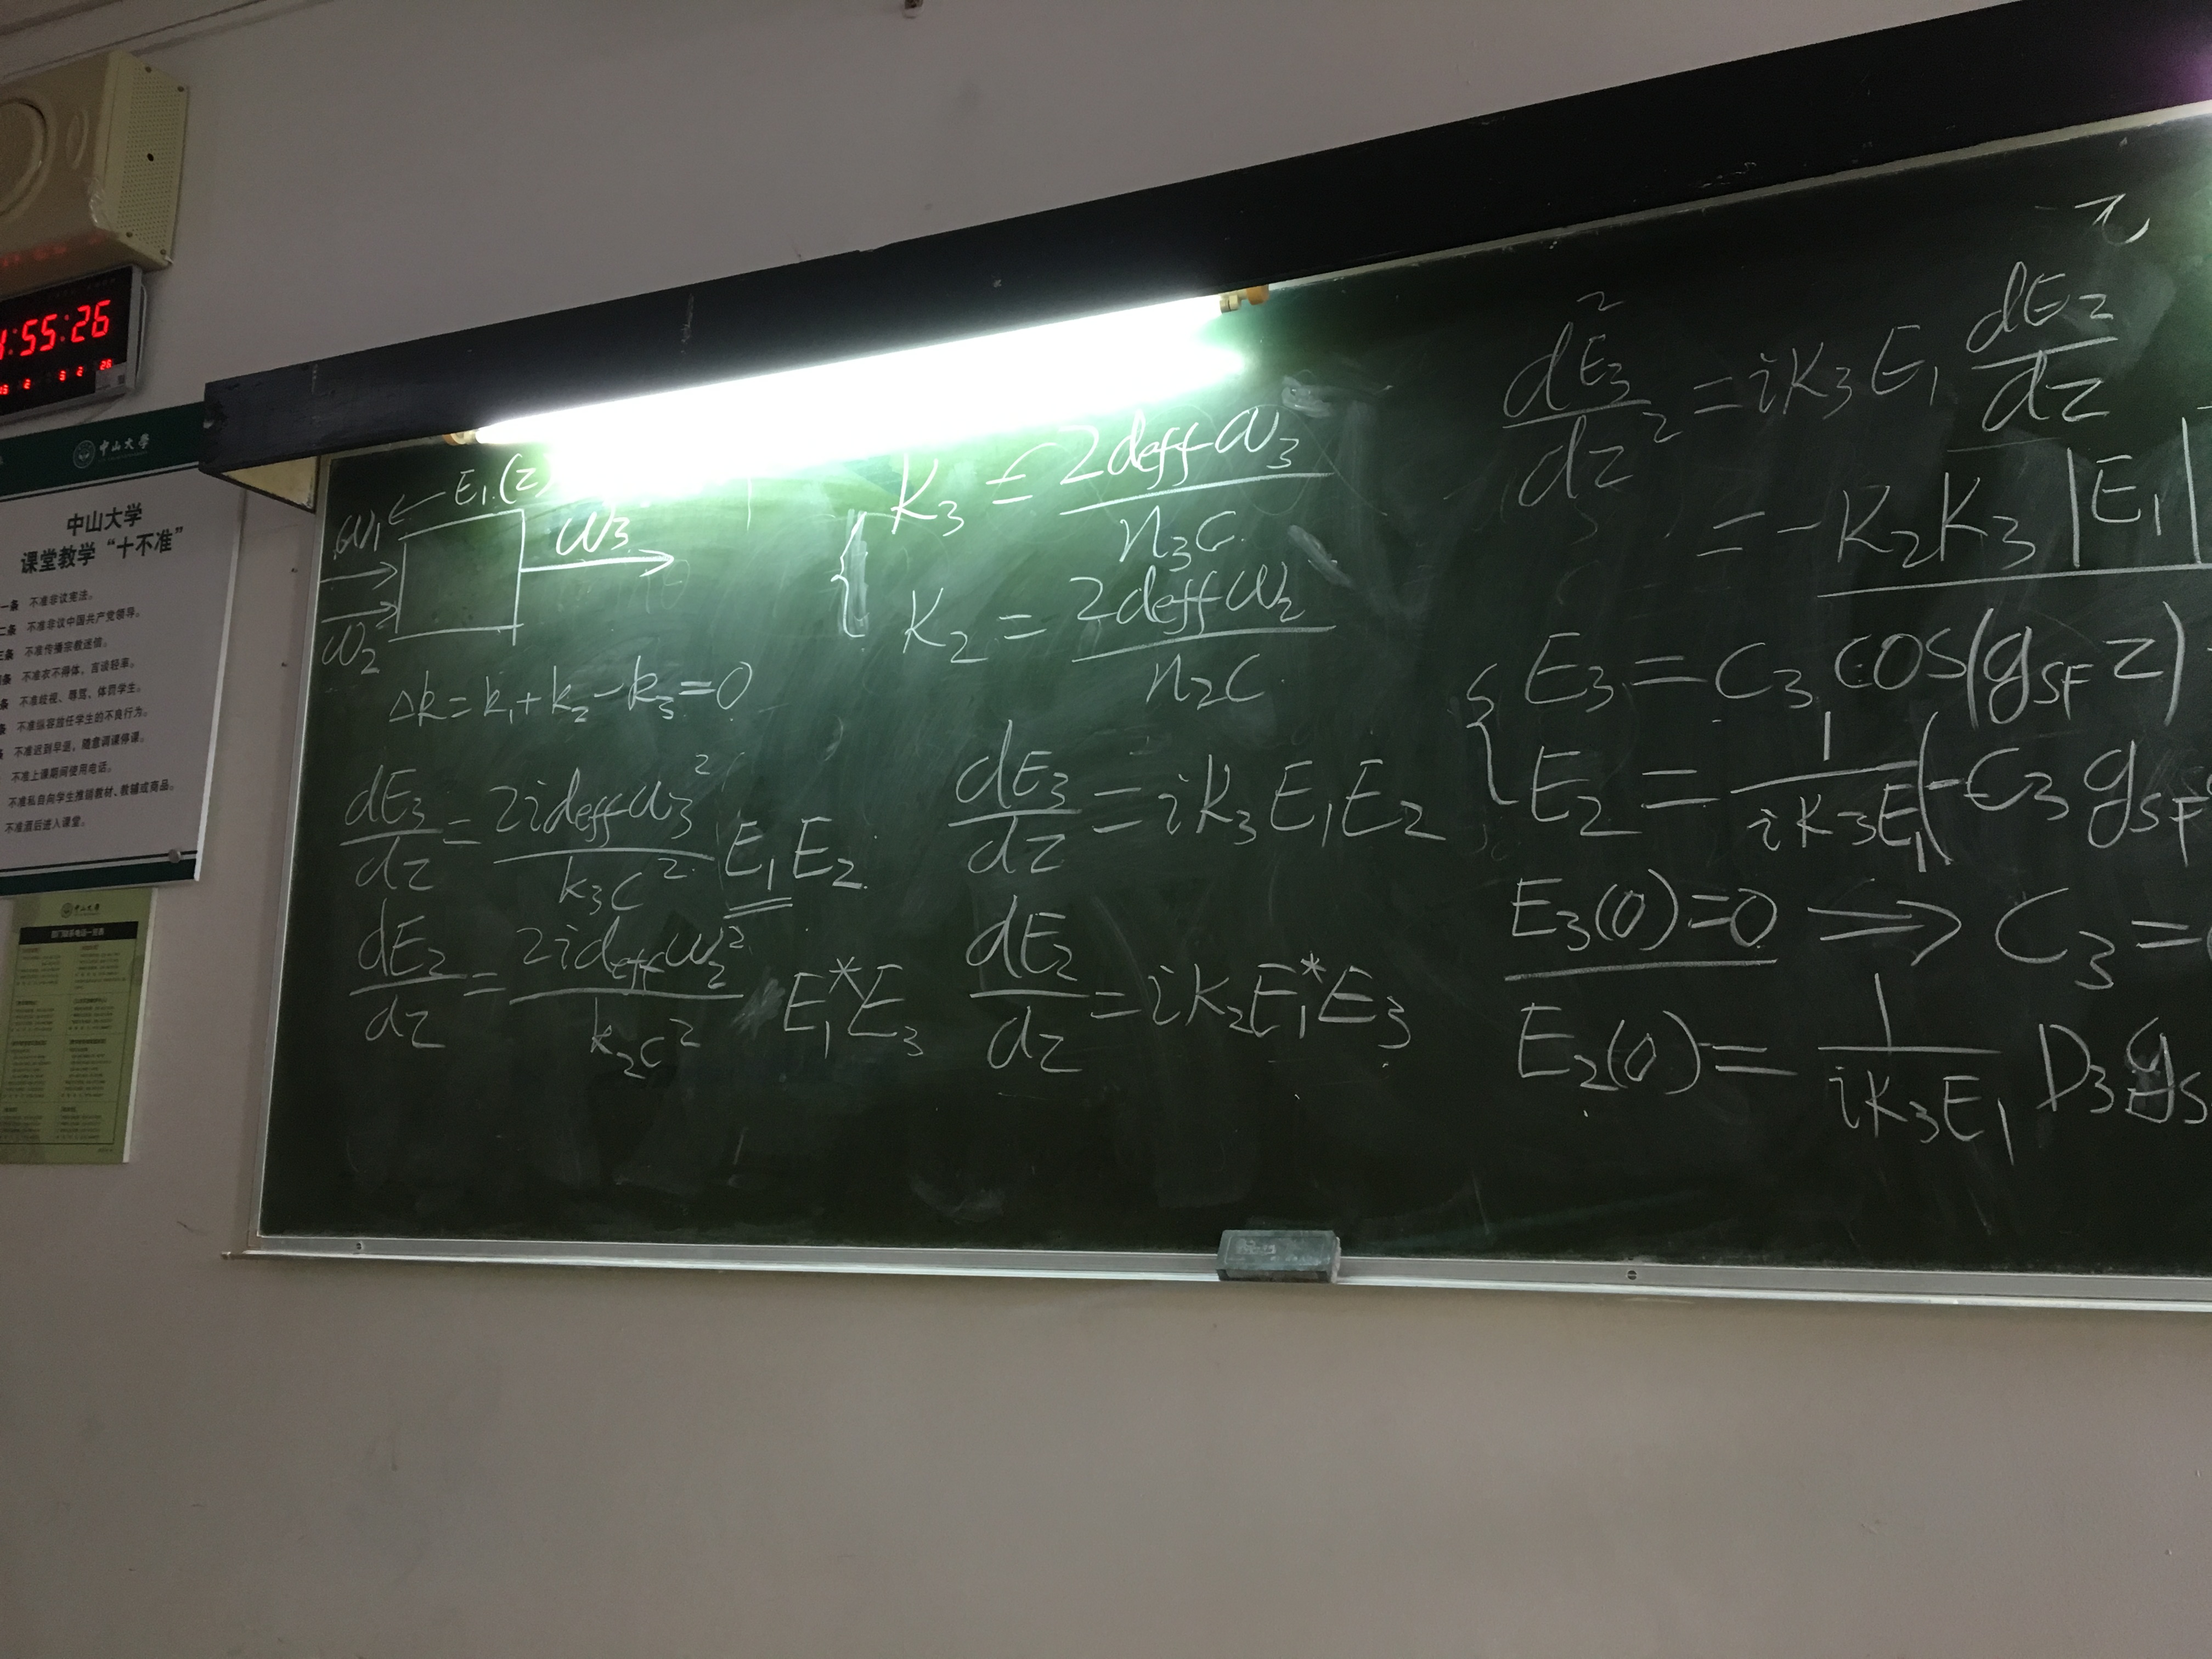 :55:26
中山大学
中山大学
课堂教学“十不准”
一条 不准非议宪法。
二条 不准非议中国共产党领导。
三条 不准传播宗教迷信。
条 不准衣不得体,言谈轻率。
条 不准歧视、辱骂、体罚学生。
条 不准纵容放任学生的不良行为。
条 不准迟到早退,随意调课停课。
不准上课期间使用电话。
不准私自向学生推销教材、教辅或商品。
不准酒后进入课堂。
中山大学
ω₁ ← E₁(z)
ω₃
ω₂
Δk = k₁ + k₂ − k₃ = 0
dE₃/dz = 2i d_eff ω₃²/(k₃c²) E₁E₂
dE₂/dz = 2i d_eff ω₂²/(k₂c²) E₁*E₃
K₃ = 2d_eff ω₃/(n₃c)
K₂ = 2d_eff ω₂/(n₂c)
dE₃/dz = iK₃E₁E₂
dE₂/dz = iK₂E₁*E₃
d²E₃/dz² = iK₃E₁ dE₂/dz
= −K₂K₃|E₁|
E₃ = C₃ cos(g_SF z)
E₂ = 1/(iK₃E₁) (−C₃ g_SF
E₃(0)=0 ⇒ C₃ =
E₂(0) = 1/(iK₃E₁) D₃ g_S